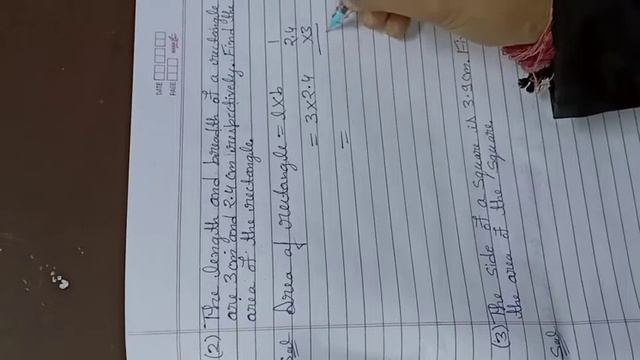 DATE
PAGE
(2) The length and breadth of a rectangle
are 3 cm and 2.4 cm respectively. Find the
area of the rectangle.
Sol Area of rectangle = l × b
= 3 × 2.4
=
1
2.4
×3
(3) The side of a square is 3.9 cm.
the area of the square.
Sol